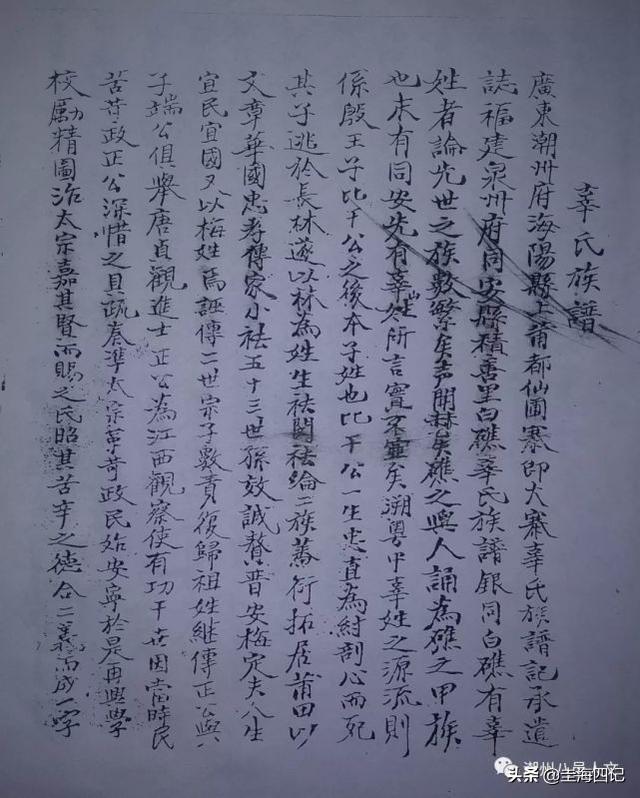 辜氏族譜
廣東潮州府海陽縣上莆都仙圃寨即大寨辜氏族譜記承遺
誌福建泉州府同安縣積善里白礁辜氏族譜銀同白礁有辜
姓者論先世之族數繁矣声聞赫矣礁之與人誦為礁之甲族
也未有同安先有辜姓所言實不虛矣溯粤中辜姓之源流則
係殷王子比干公之後本子姓也比干公一生忠直為紂剖心而死
其子逃於長林遂以林為姓生祛闘祛綸二族蕃衍拓居莆田以
文章華國忠孝傳家小祛五十三世孫效誠贅晋安梅定夫公生
宜民宜國又以梅姓爲誣傳二世宗子數責復歸祖姓継傳正公與
子端公俱舉唐貞觀進士正公為江西觀察使有功于世因當時民
苦苛政正公深惜之具疏奏準太宗革苛政民始安寧於是再興學
校勵精圖治太宗嘉其賢而賜之氏昭其苦辛之徳合二義而成一字
潮州八景人文
头条 @韭海四记